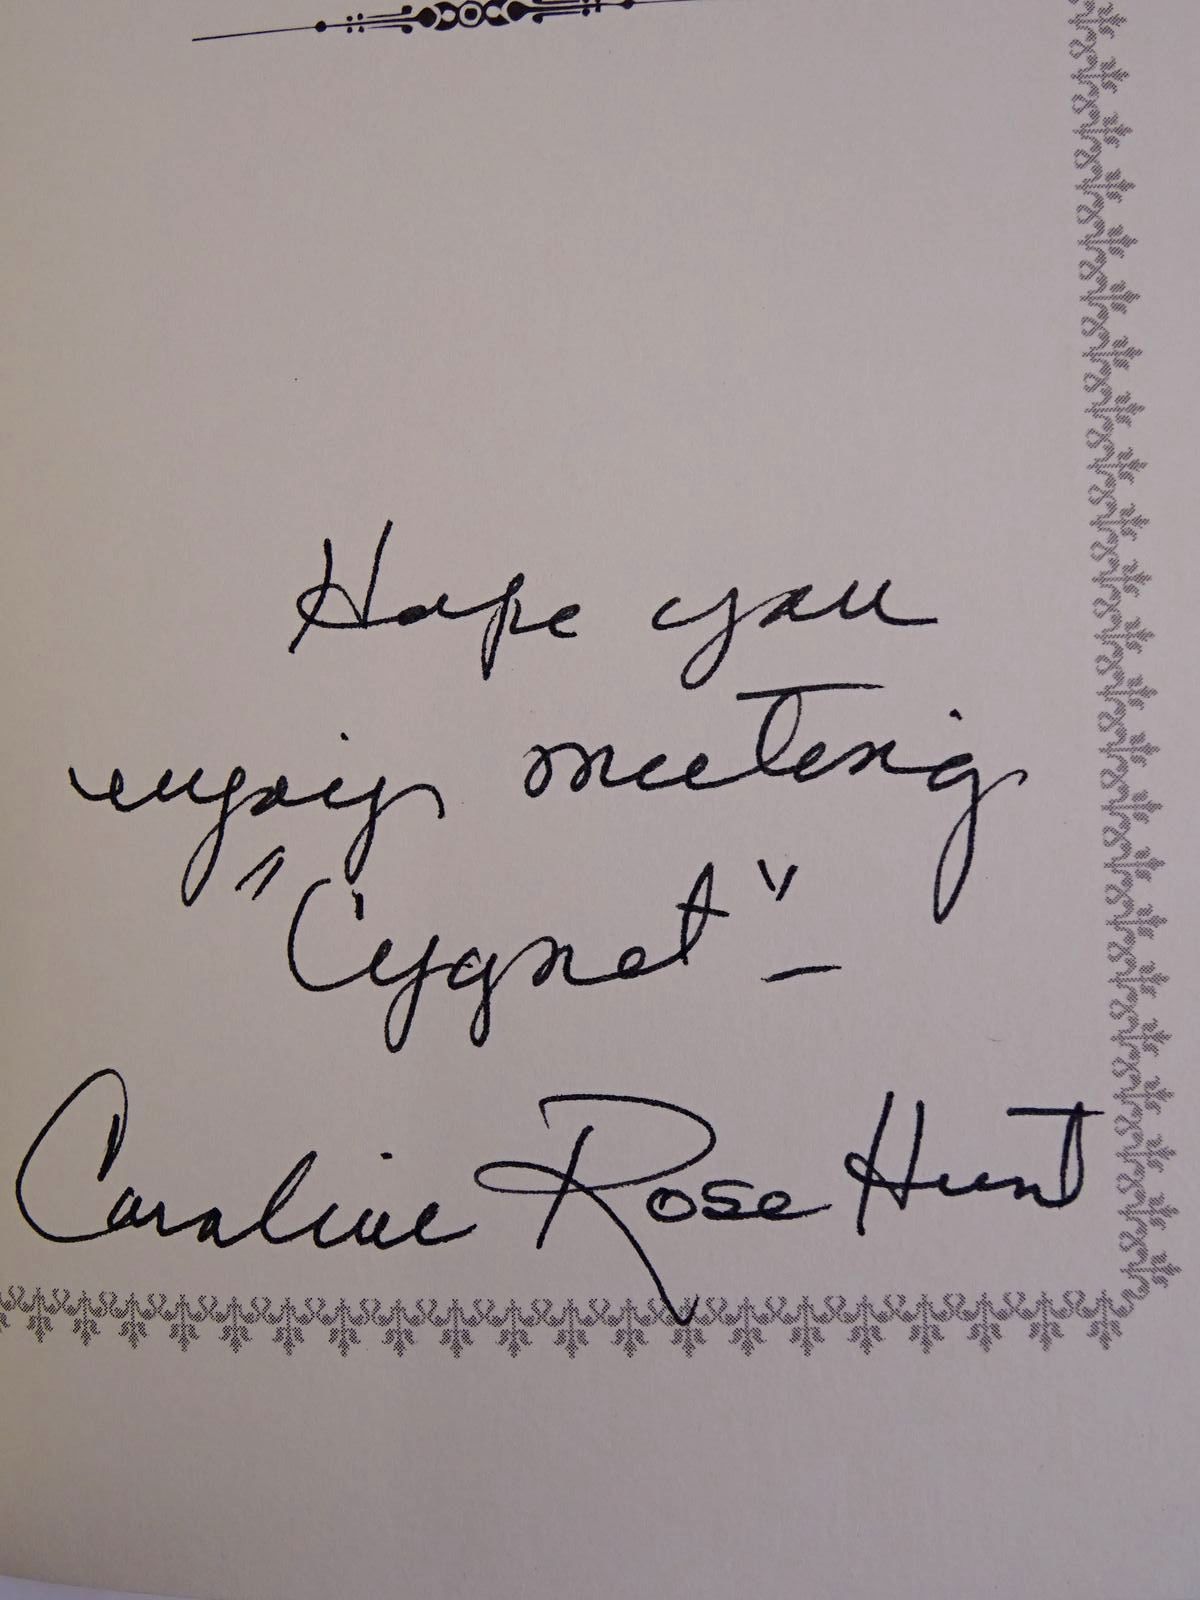 Hope you
enjoy meeting
"Cygnet" –
Caroline Rose Hunt